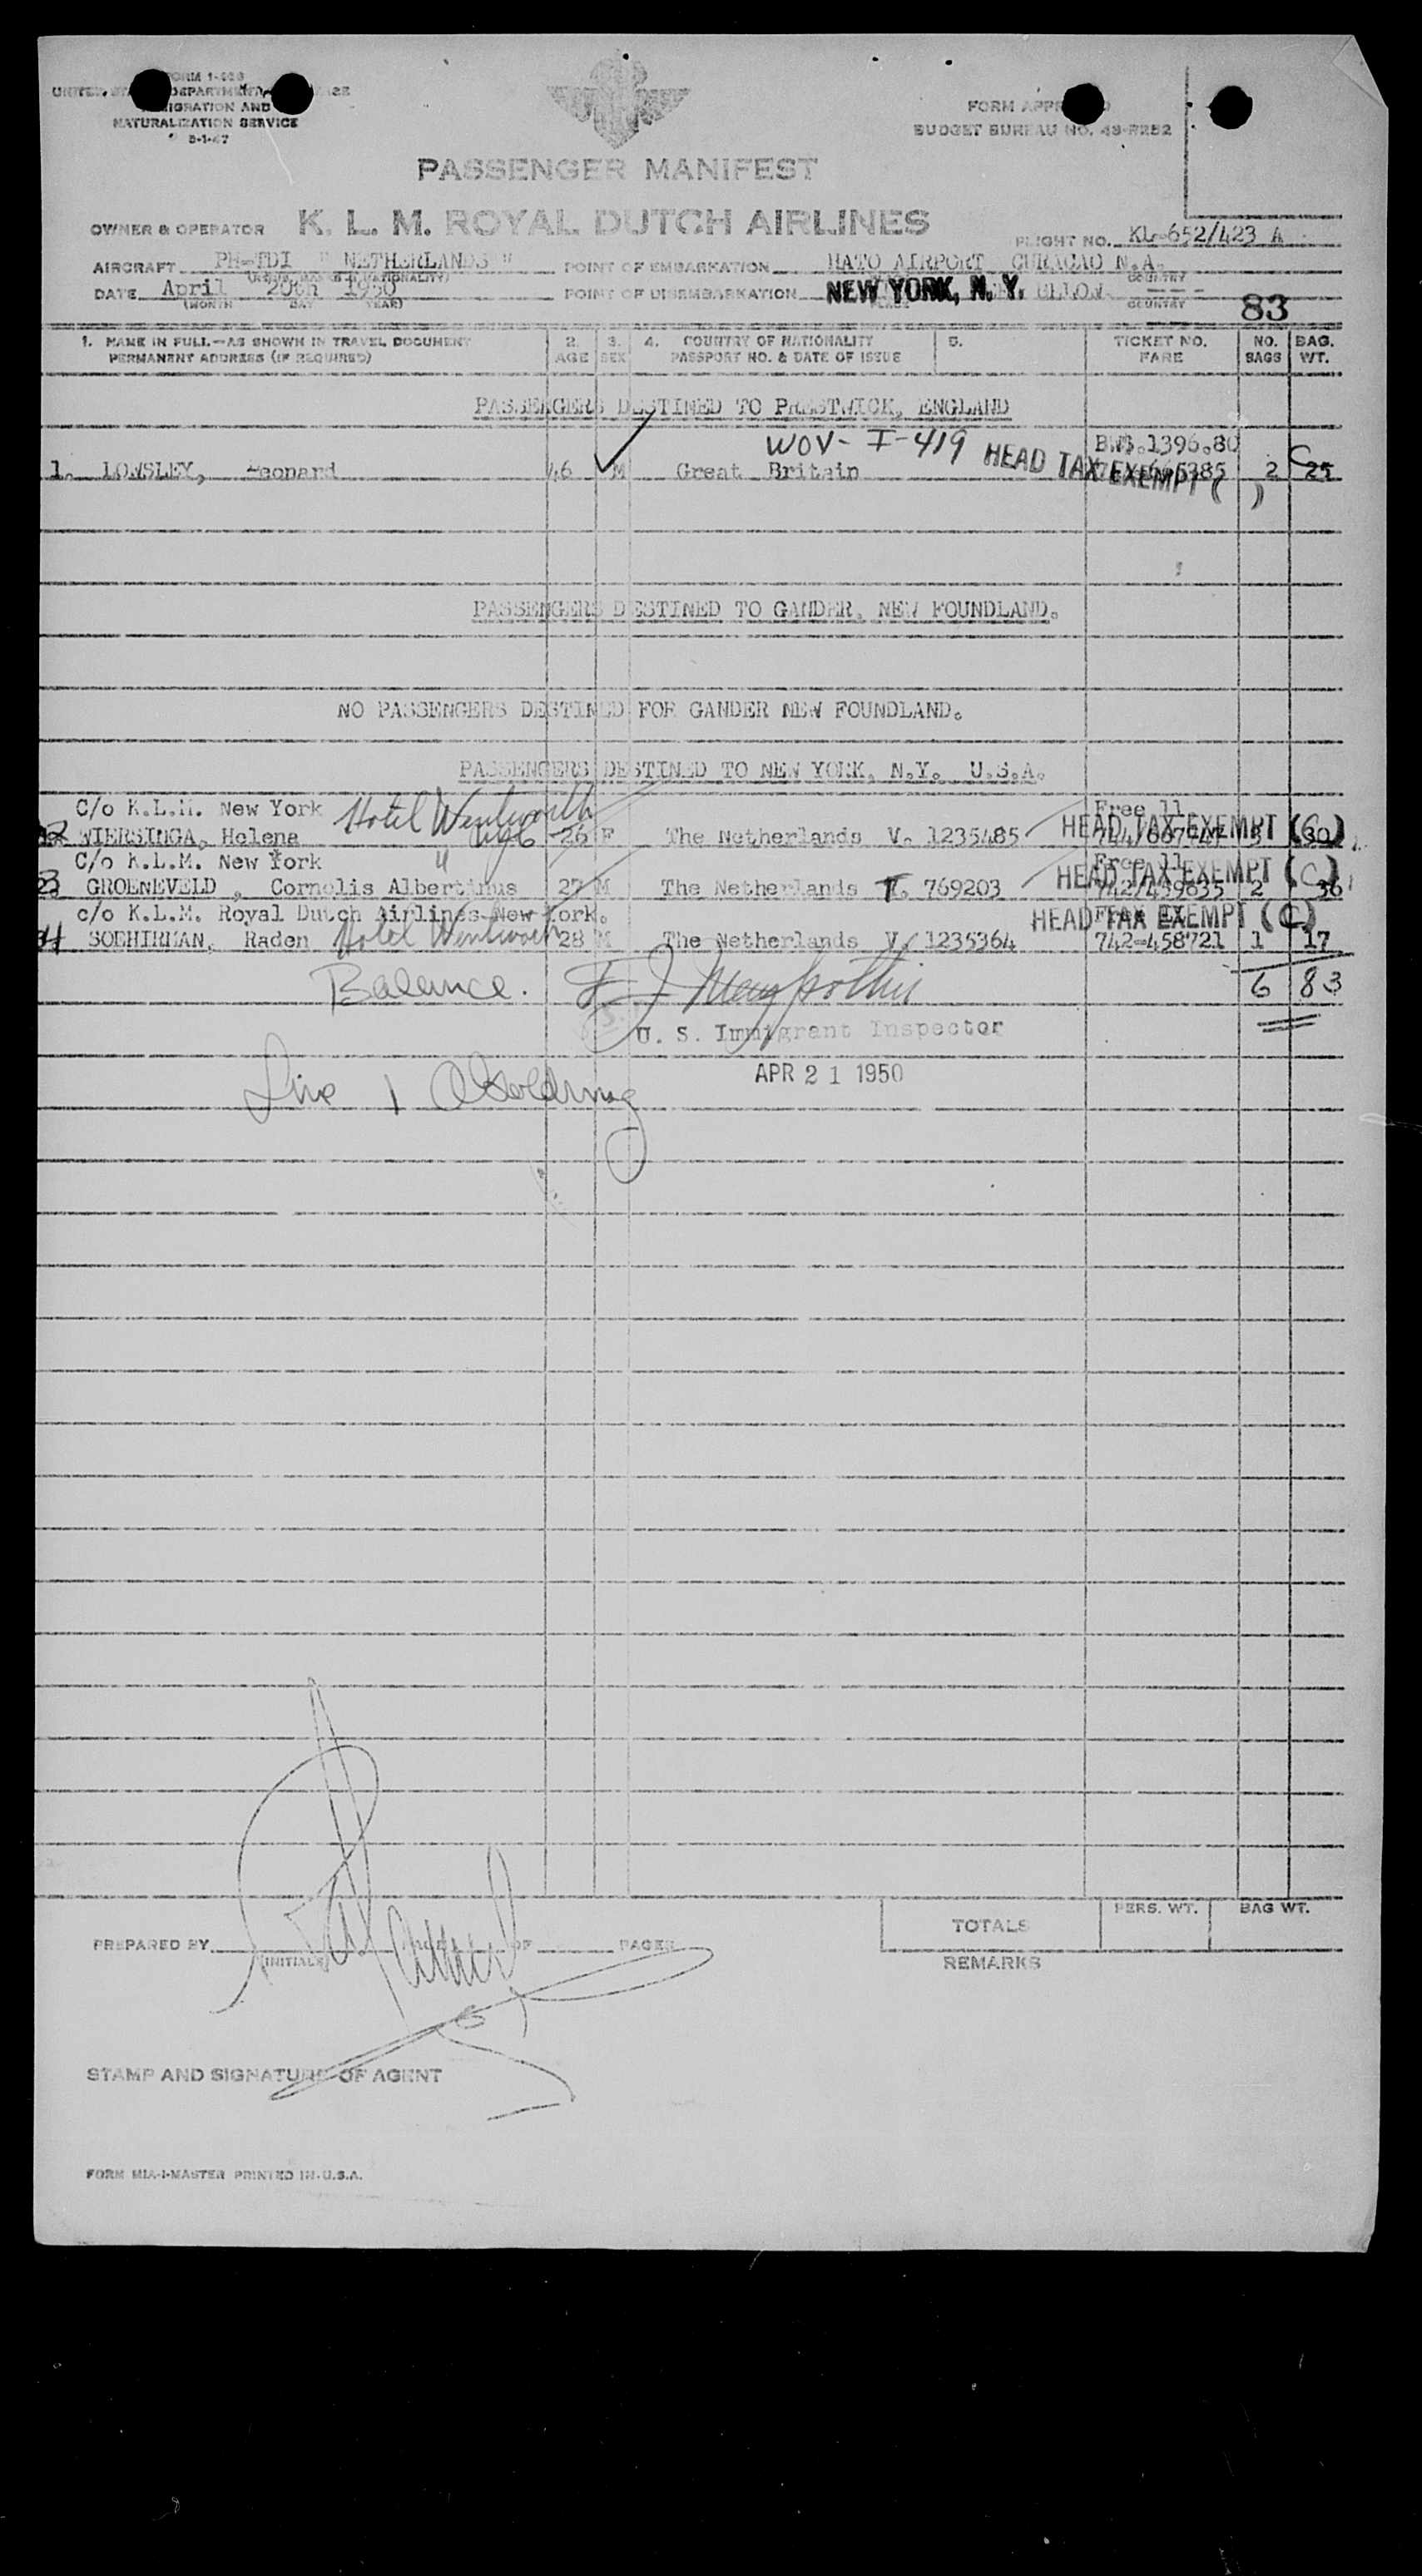 FORM I-466
UNITED STATES DEPARTMENT OF JUSTICE
IMMIGRATION AND
NATURALIZATION SERVICE
5-1-47
FORM APPROVED
BUDGET BUREAU NO. 43-R252
PASSENGER MANIFEST
OWNER & OPERATOR K. L. M. ROYAL DUTCH AIRLINES
FLIGHT NO. KL-652/423 A
AIRCRAFT PH-TDI " NETHERLANDS " POINT OF EMBARKATION HATO AIRPORT CURACAO N.A.
COUNTRY
DATE April 20th 1950 POINT OF DISEMBARKATION NEW YORK, N. Y. BELOW
(MONTH DAY YEAR) COUNTRY
83
1. NAME IN FULL—AS SHOWN IN TRAVEL DOCUMENT 2. 3. 4. COUNTRY OF NATIONALITY 5. TICKET NO. NO. BAG.
PERMANENT ADDRESS (IF REQUIRED) AGE SEX PASSPORT NO. & DATE OF ISSUE FARE BAGS WT.
PASSENGERS DESTINED TO PRESTWICK, ENGLAND
WOV- I-419 HEAD TAX EXEMPT ( ) 1396.80
1. LOWSLEY, Leonard 46 M Great Britain 2 C 25
PASSENGERS DESTINED TO GANDER, NEW FOUNDLAND.
NO PASSENGERS DESTINED FOR GANDER NEW FOUNDLAND.
PASSENGERS DESTINED TO NEW YORK, N.Y. U.S.A.
C/o K.L.M. New York Hotel Wentworth Free 11
2 WIERSINGA, Helena 26 F The Netherlands V. 1235485 HEAD TAX EXEMPT (C) 3 30
C/o K.L.M. New York " Free 11
3 GROENEVELD , Cornelis Albertinus 27 M The Netherlands T. 769203 HEAD TAX EXEMPT (C) 742/459635 2 36
c/o K.L.M. Royal Dutch Airlines New York. HEAD TAX EXEMPT (C)
4 SODHIRMAN, Raden Hotel Wentworth 28 M The Netherlands V. 1235364 742-458721 1 17
Balance. 6 83
U. S. Immigrant Inspector
APR 21 1950
Line 1
TOTALS PERS. WT. BAG WT.
PREPARED BY PAGE OF PAGES
(INITIALS) REMARKS
STAMP AND SIGNATURE OF AGENT
FORM MIA-1-MASTER PRINTED IN U.S.A.